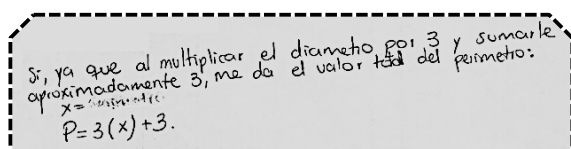 Si, ya que al multiplicar el diametro por 3 y sumarle
aproximadamente 3, me da el valor total del perimetro:
x=
P=3(x)+3.